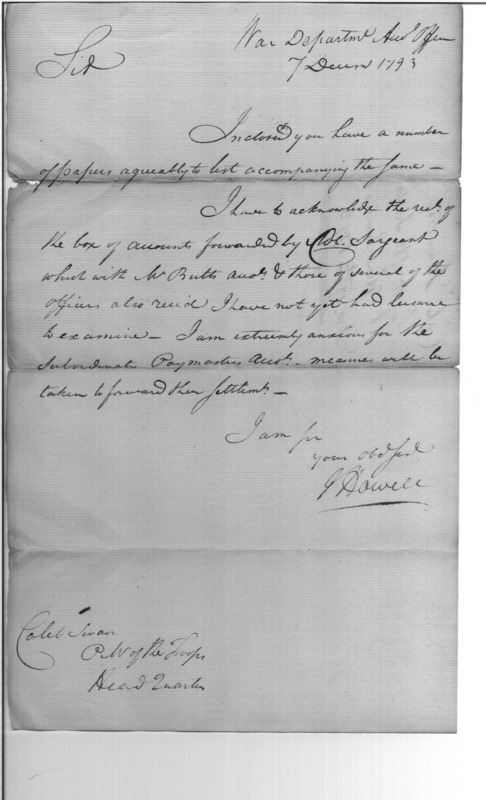 War Departmt Accts Office
7 Decem 1793
Sir
Inclosed you have a number
of papers agreeably to list accompanying the same —
I have to acknowledge the rect. of
the box of accounts forwarded by Col. Sargeant
which with Mr Britts Accts. & those of several of the
officers also rec'd I have not yet had leisure
to examine — I am extremely anxious for the
Subordinate Paymasters Accts. measures will be
taken to forward their settlemt. —
I am Sir
your obd Serv
J Howell
Caleb Swan
P. M of the Troops
Head Quarters